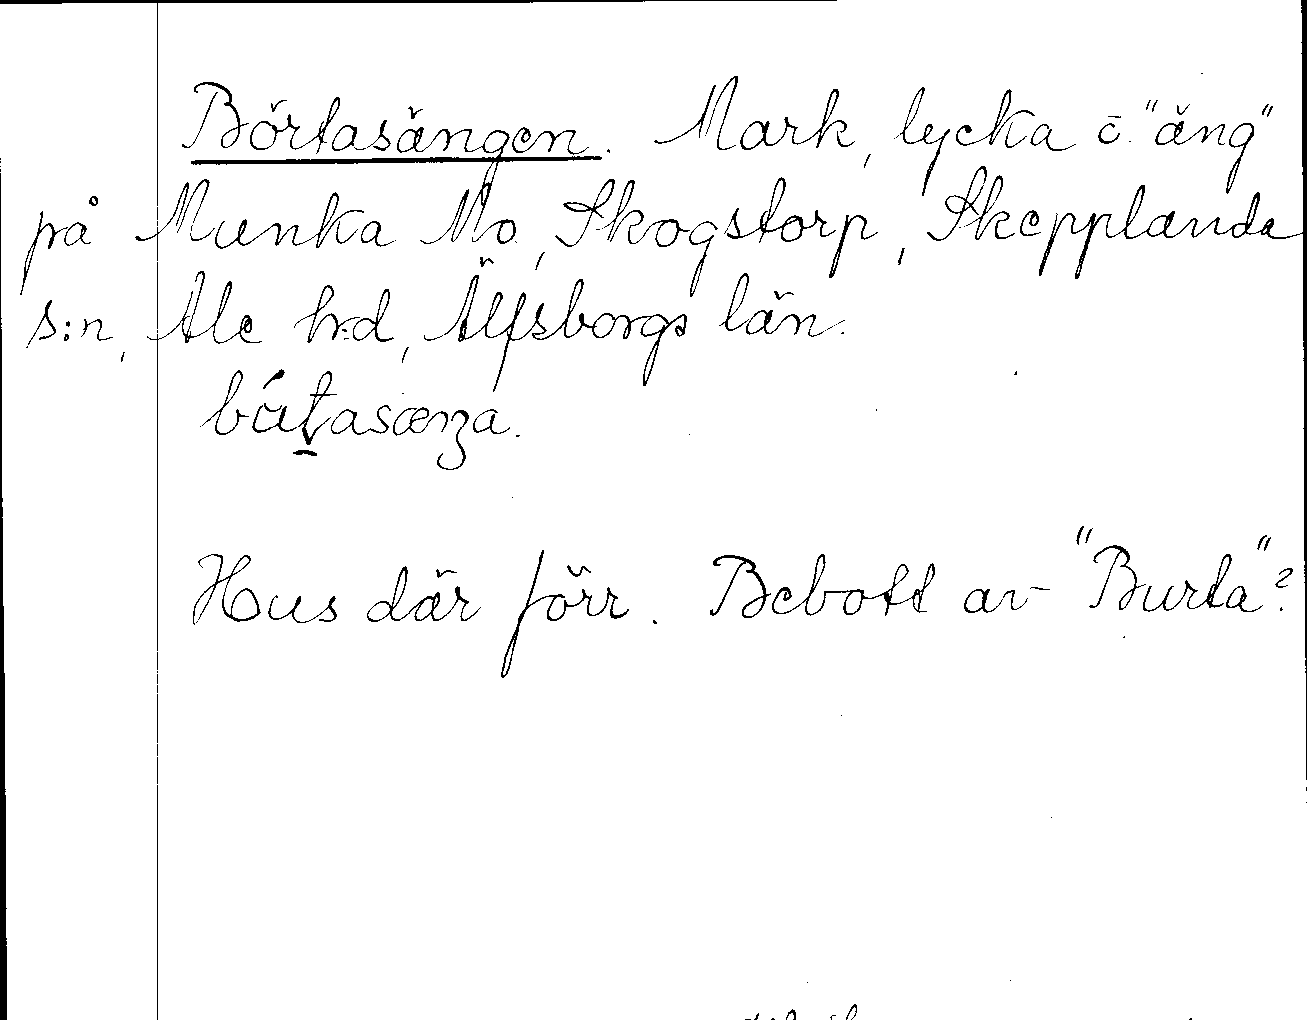 Börtasängen. Mark, lycka o. "äng"
på Munka Mo, Skogstorp, Skepplanda
s:n, Ale h:d, Älfsborgs län.
Hus där förr. Bebott av "Burta"?